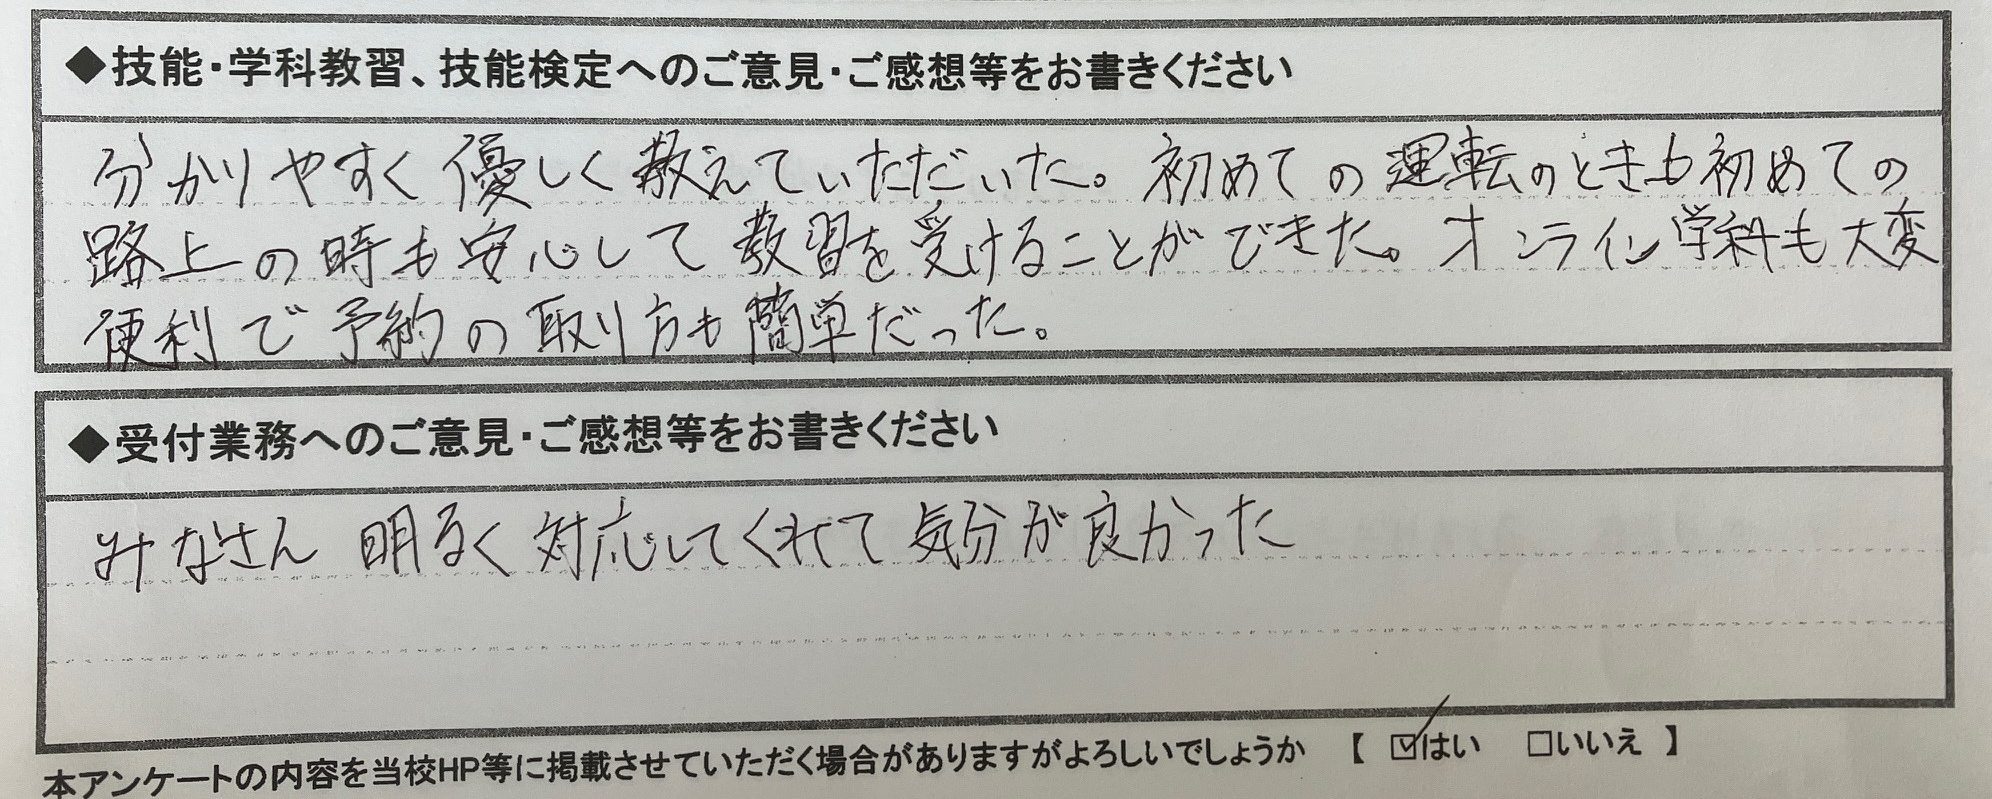 ◆技能・学科教習、技能検定へのご意見・ご感想等をお書きください
分かりやすく優しく教えていただいた。初めての運転のときも初めての
路上の時も安心して教習を受けることができた。オンライン学科も大変
便利で予約の取り方も簡単だった。
◆受付業務へのご意見・ご感想等をお書きください
みなさん明るく対応してくれて気分が良かった
本アンケートの内容を当校HP等に掲載させていただく場合がありますがよろしいでしょうか 【 ☑はい □いいえ 】